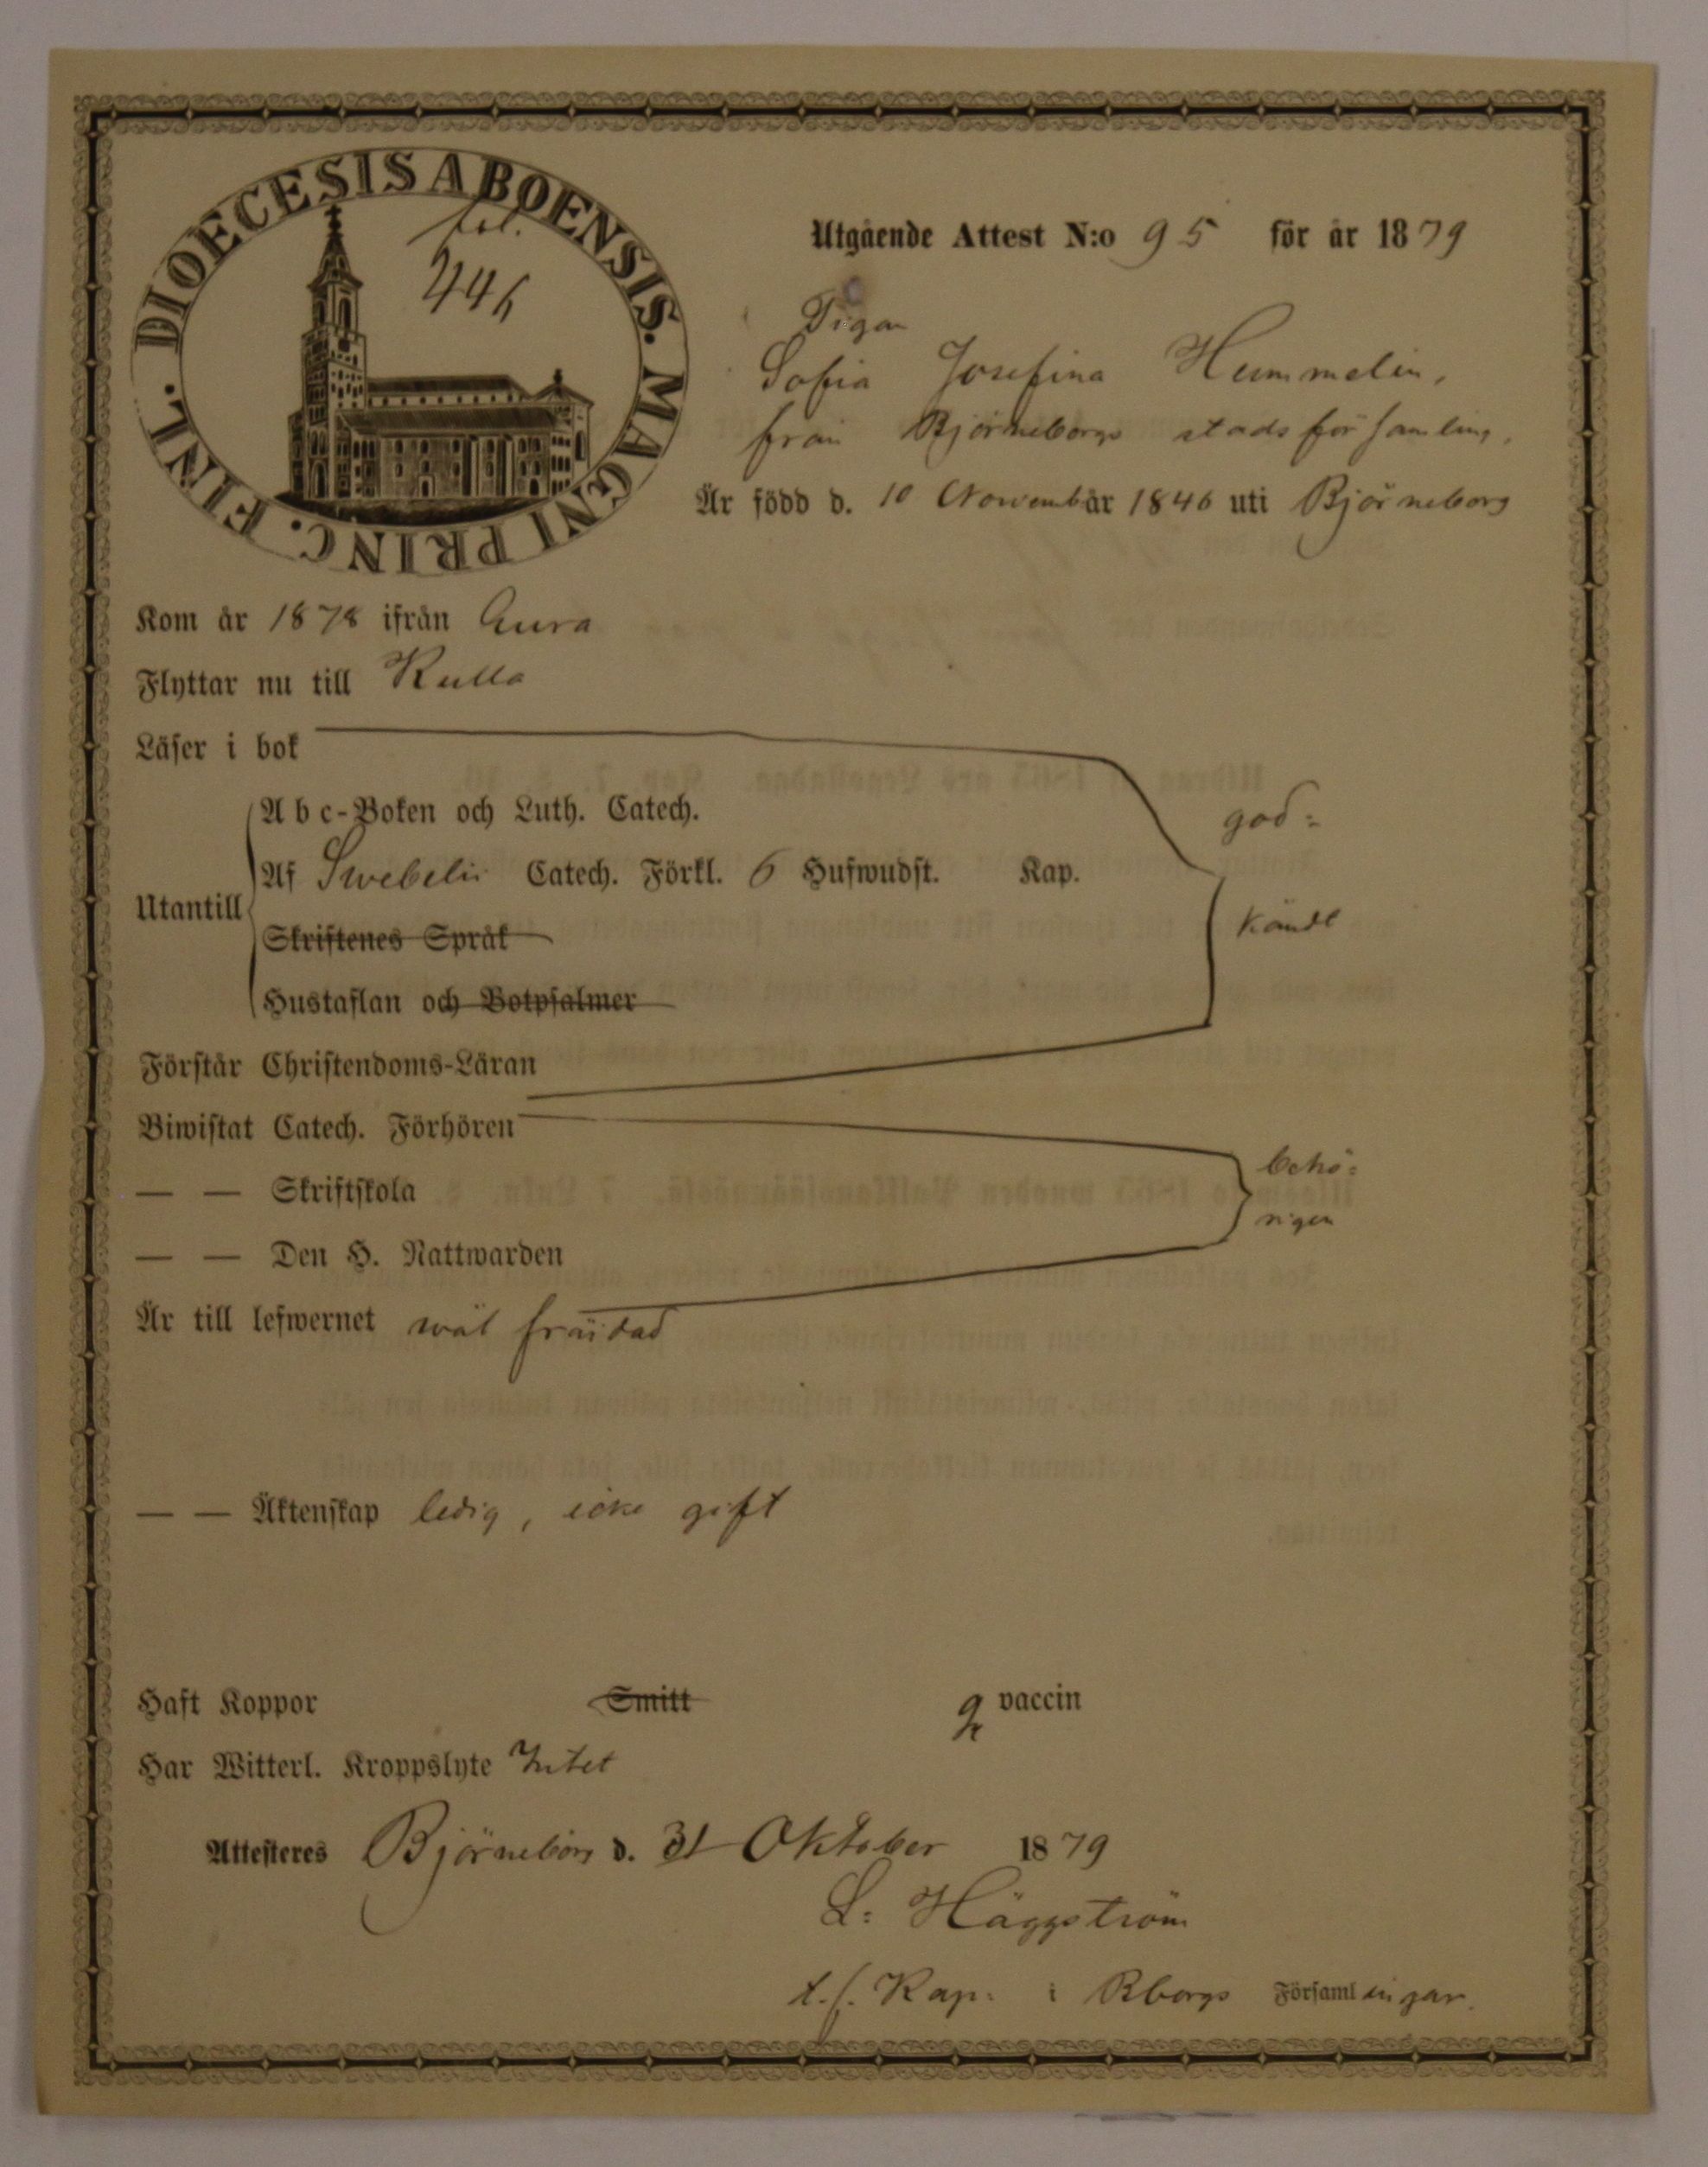 DIOECESIS ABOENSIS. MAGNI PRINC. FINL.
fol.
446
Utgående Attest N:o 95 för år 1879
Pigan
Sofia Josefina Hummelin,
från Björneborgs stadsförsamling,
Är född d. 10 Novembår 1846 uti Björneborg
Kom år 1878 ifrån Eura
Flyttar nu till Kulla
Läser i bok
Abc-Boken och Luth. Catech.
god=
Af Swebelii Catech. Förkl. 6 Hufwudst. Kap.
Utantill
kändt
Skriftenes Språk
Hustaflan och Botpsalmer
Förstår Christendoms-Läran
Biwistat Catech. Förhören
behö=
— — Skriftskola
rigen
— — Den H. Nattwarden
Är till lefwernet wäl fräjdad
— — Äktenskap ledig, icke gift
Haft Koppor Smitt vaccin
Har Witterl. Kroppslyte Intet
Attesteres Björneborg d. 31 Oktober 1879
L: Häggström
t.f. Kap: i Bborgs Församlingar.